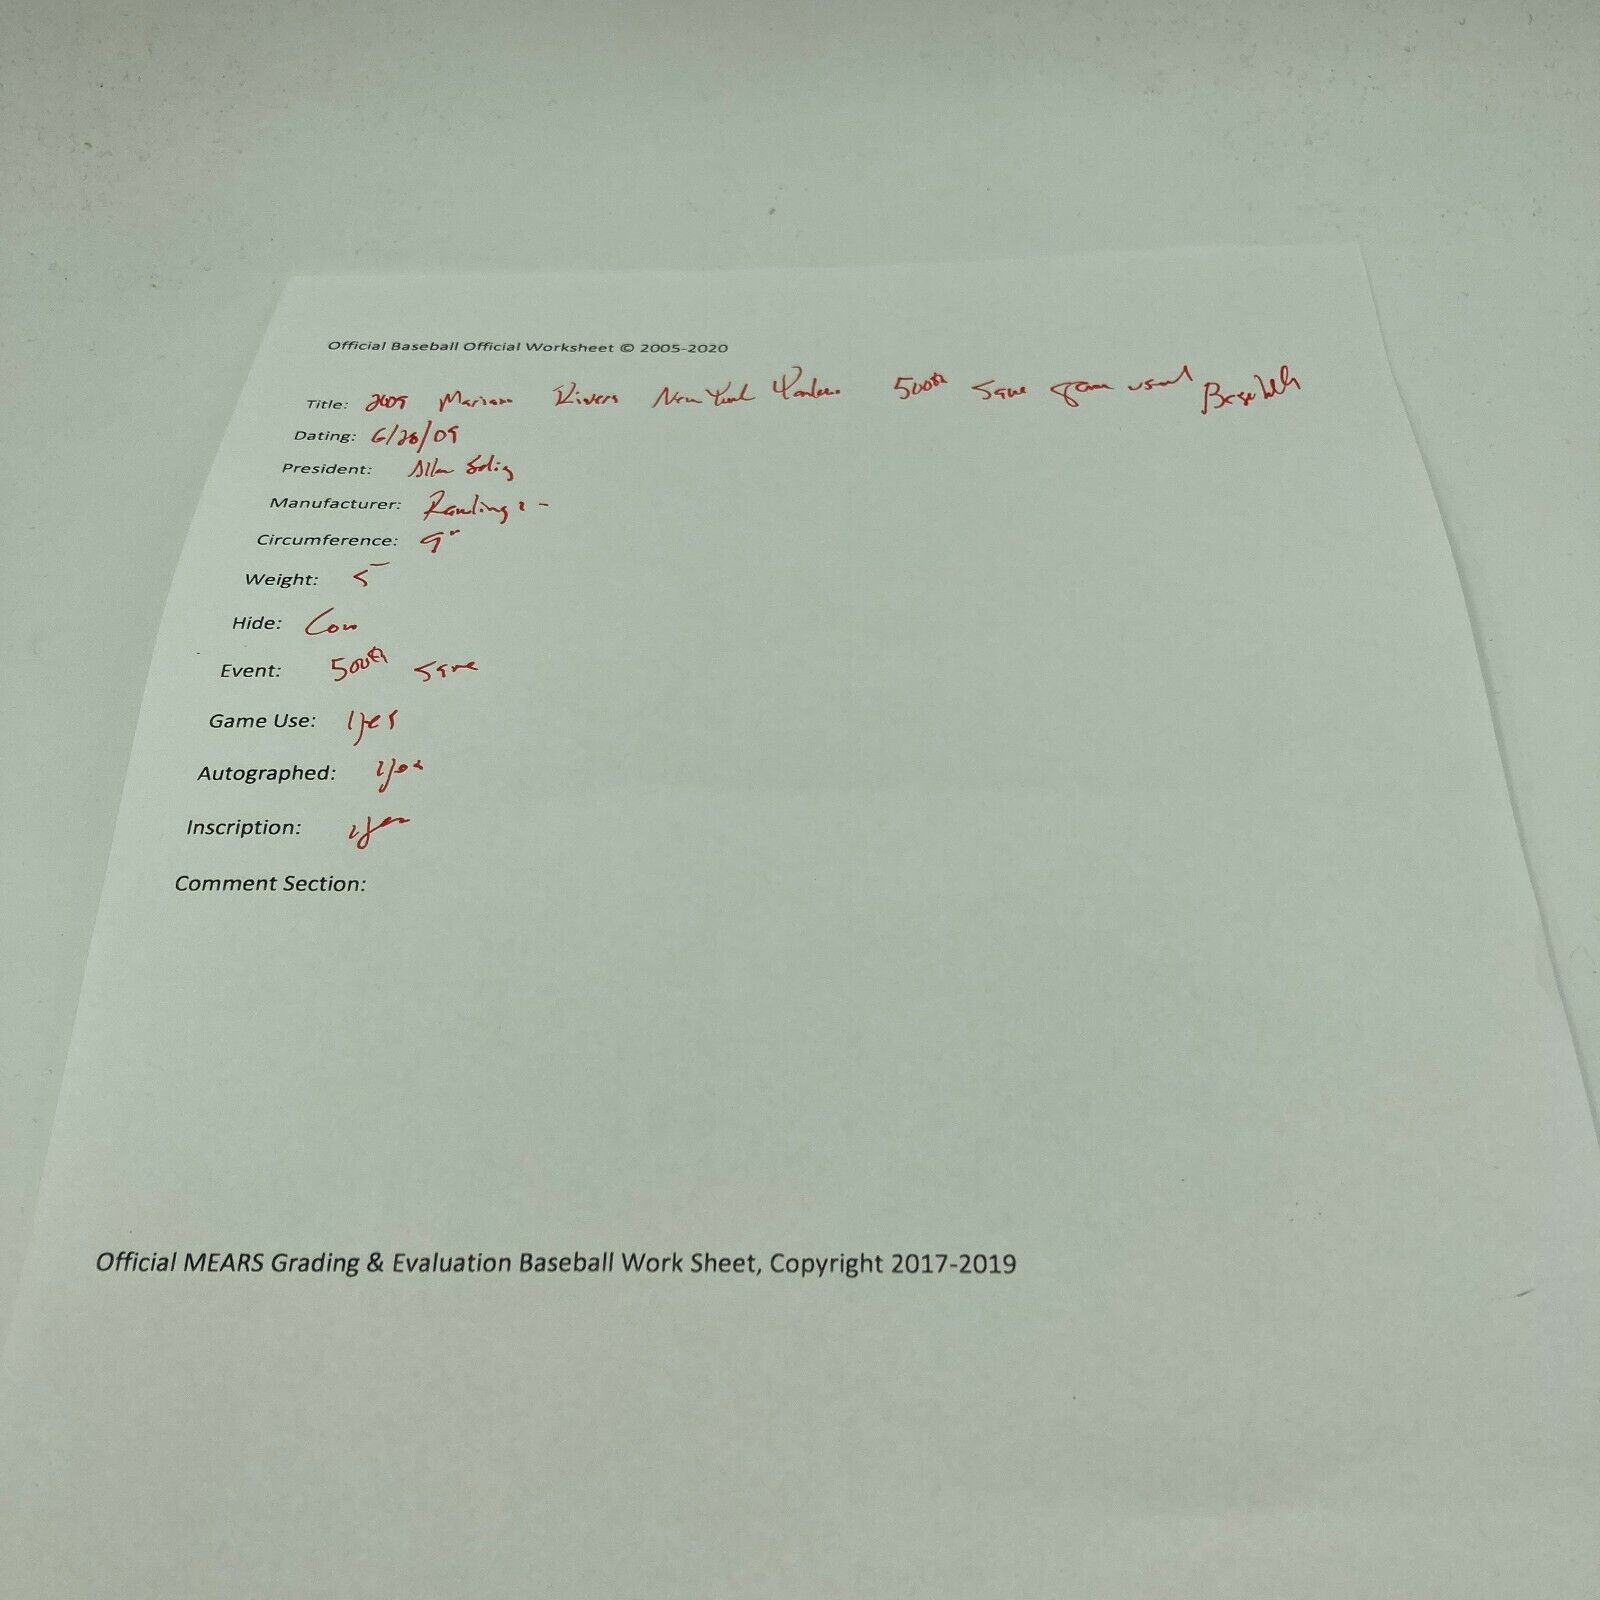 Official Baseball Official Worksheet © 2005-2020
Title: 2009 Mariano Rivera New York Yankees 500th save game used Baseball
Dating: 6/28/09
President: Allan Selig
Manufacturer: Rawlings -
Circumference: 9"
Weight: 5
Hide: Cow
Event: 500th save
Game Use: yes
Autographed: yes
Inscription: yes
Comment Section:
Official MEARS Grading & Evaluation Baseball Work Sheet, Copyright 2017-2019